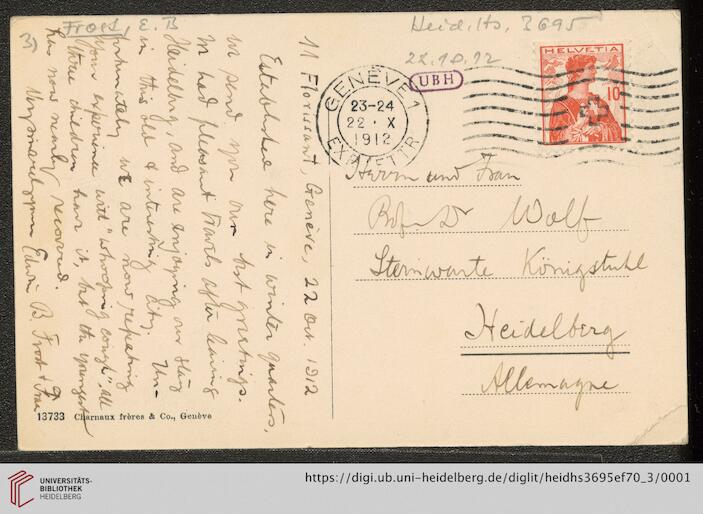 3)
Frost, E. B
Heid. Hs. 3695
22.10.12
UBH
HELVETIA
10
GENÈVE 1
23-24
22 · X
1912
EXP. LETTR.
11 Florissant, Genève, 22 Oct. 1912
Established here in winter quarters,
we send you our best greetings.
We had pleasant travels after leaving
Heidelberg, and are enjoying our stay
in this old & interesting city. Un-
fortunately we are now repeating
your experience with "whooping cough". All
three children have it, but the youngest
has now nearly recovered.
Very sincerely yours Edwin B Frost & Frau
Herrn und Frau
Prof. Dr Wolf
Sternwarte Königstuhl
Heidelberg
Allemagne
13733 Charnaux frères & Co., Genève
UNIVERSITÄTS-
BIBLIOTHEK
HEIDELBERG
https://digi.ub.uni-heidelberg.de/diglit/heidhs3695ef70_3/0001